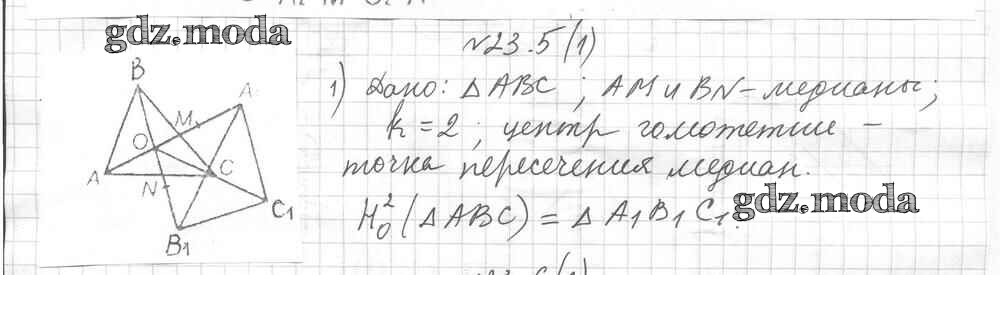 gdz.moda
№23.5(1)
1) Дано: △ABC ; AM и BN - медианы;
k = 2 ; центр гомотетии -
точка пересечения медиан.
H₀²(△ABC) = △A₁B₁C₁.
gdz.moda
B
A
M
O
A
N
C
C₁
B₁